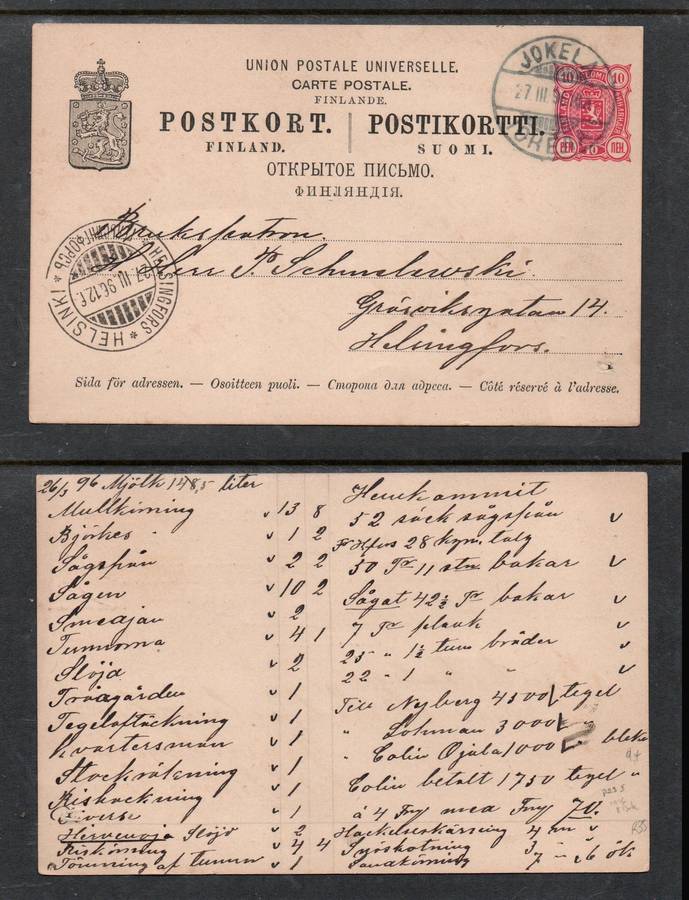 UNION POSTALE UNIVERSELLE.
CARTE POSTALE.
FINLANDE.
POSTKORT. | POSTIKORTTI.
FINLAND. SUOMI.
ОТКРЫТОЕ ПИСЬМО.
ФИНЛЯНДІЯ.
JOKELA
27 III 96
10 10
PEN. ПЕН.
Brukspatron
Herr P. Schmalowski.
Gräsviksgatan 14.
Helsingfors.
HELSINGFORS * HELSINKI * ГЕЛЬСИНГФОРСЪ
27 III 96
Sida för adressen. — Osoitteen puoli. — Сторона для адреса. — Côté réservé à l'adresse.
26/3 96 Mjölk 148,5 liter
Mullkörning v 13 8
Björkes v 1 2
Sågspån v 2 2
Sågen v 10 2
Smedjan v 2
Tunnorna v 4 1
Slöjd v 2
Trädgården v 1
Tegelaftäckning v 1
Kvartersman v 1
Stockräkning v 1
Rishackning v 1
Diverse v 1
Slöjd v 2
Riskörning v 4 4
Tömning af tunnor v 1
Hemkommit
52 säck sågspån v
Fr Hfors 28 kgm. talg
50 11 bakar v
Sågat 42½ bakar v
7 plank v
25 " 1½ tum bräder v
22 " 1 " " v
Till Nyberg 4500 tegel
" Lohman 3000 "
" Colin Ojala 1000
Colin betalt 1750 tegel
à 4 Fmk med Fmk 7.0.
Hackelseskärning 4 mn v
Snöskottning 3 "
Sandkörning 7 " 6 ök